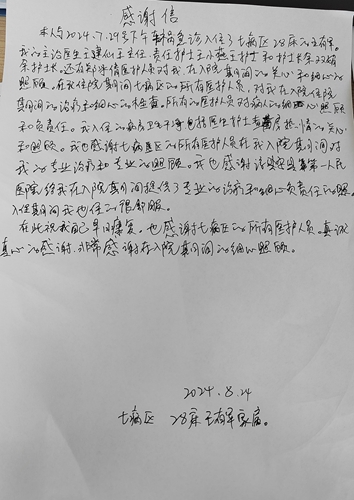 感谢信
本人与2024.7.29号下午 急诊入住了七病区28床的王有军。
我的主治医生王建仙主任,责任护士王小燕王护士和护士长邓
余护士长,还有 医护人员对我,在入院期间的关心和细心的
照顾。在我住院期间七病区的所有医护人员,对我在入院住院
期间的诊疗和细心的检查。所有的医护人员对病人的细心照顾
和负责任。我入住的病房卫生干净包括医生护士 房热情的关心
和照顾。我也感谢七病区的所有医护人员在我入院期间对
我的专业诊疗和专业的照顾。我也感谢 第一人民
医院给我在入院期间提供了专业的诊疗和细心负责任的照
入住期间我也住的很舒服。
在此祝我自早日康复。也感谢七病区的所有医护人员。真诚
真心的感谢.非常感谢在入院期间的细心照顾。
2024.8.24
七病区 28床 王有军家属。